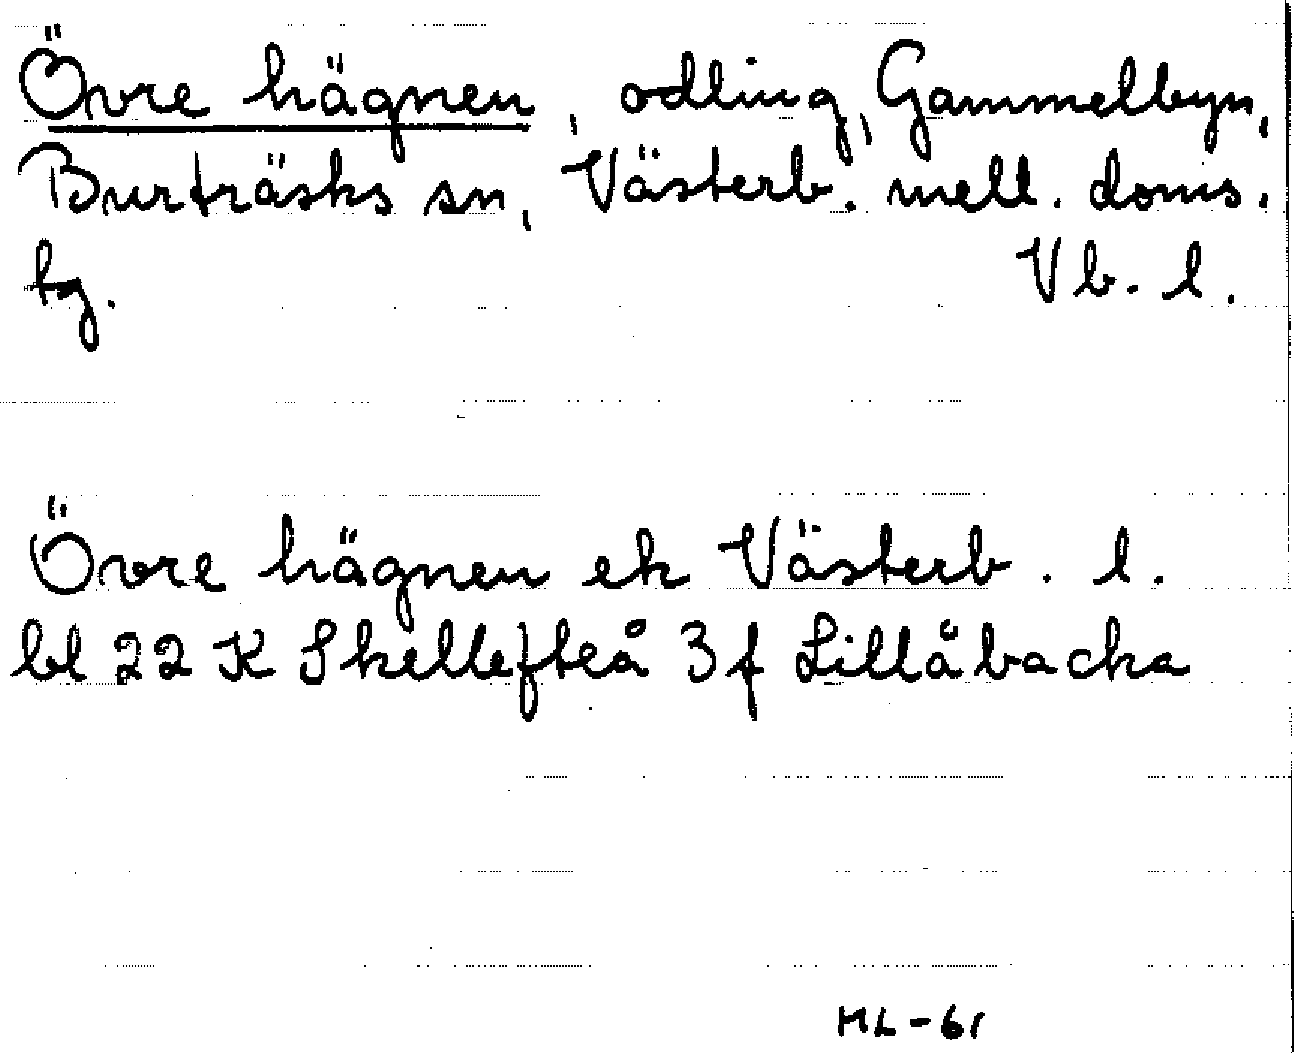 Övre hägnen, odling, Gammelbyn,
Burträsks sn, Västerb. mell. doms.
tg. Vb. l.
Övre hägnen ek Västerb. l.
bl 22 K Skellefteå 3 f Lillåbacka
ML-61